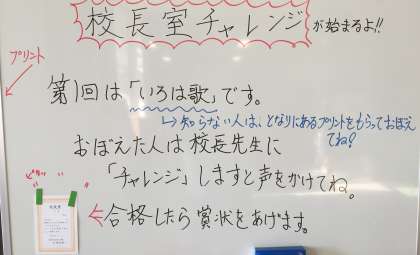 校長室チャレンジが始まるよ!!
プリント
第1回は「いろは歌」です。
↳知らない人は、となりにあるプリントをもらっておぼえてね?
おぼえた人は校長先生に
「チャレンジ」しますと声をかけてね。
合格したら賞状をあげます。